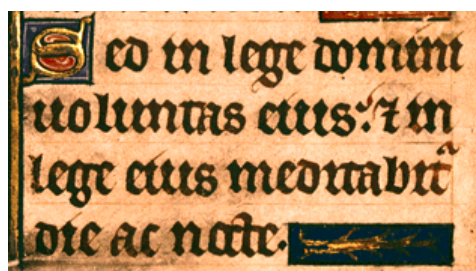 Sed in lege domini
uoluntas eius: ⁊ in
lege eius meditabitᷓ
die ac nocte.